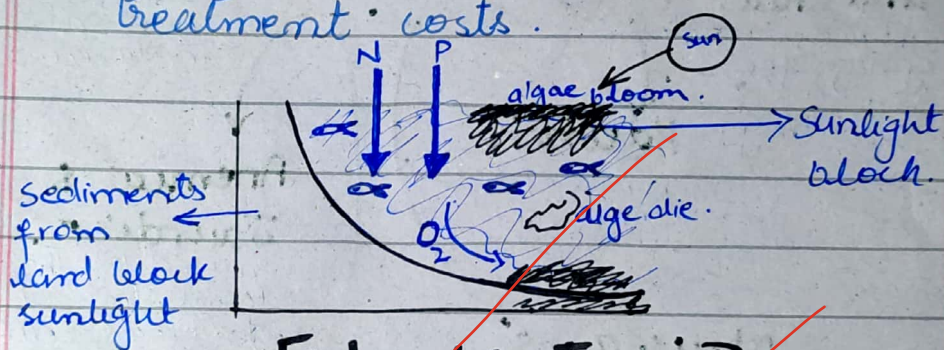 treatment costs.
N P
Sun
algae bloom.
Sunlight
block.
Sediments
from
land block
sunlight
O2
alge die.